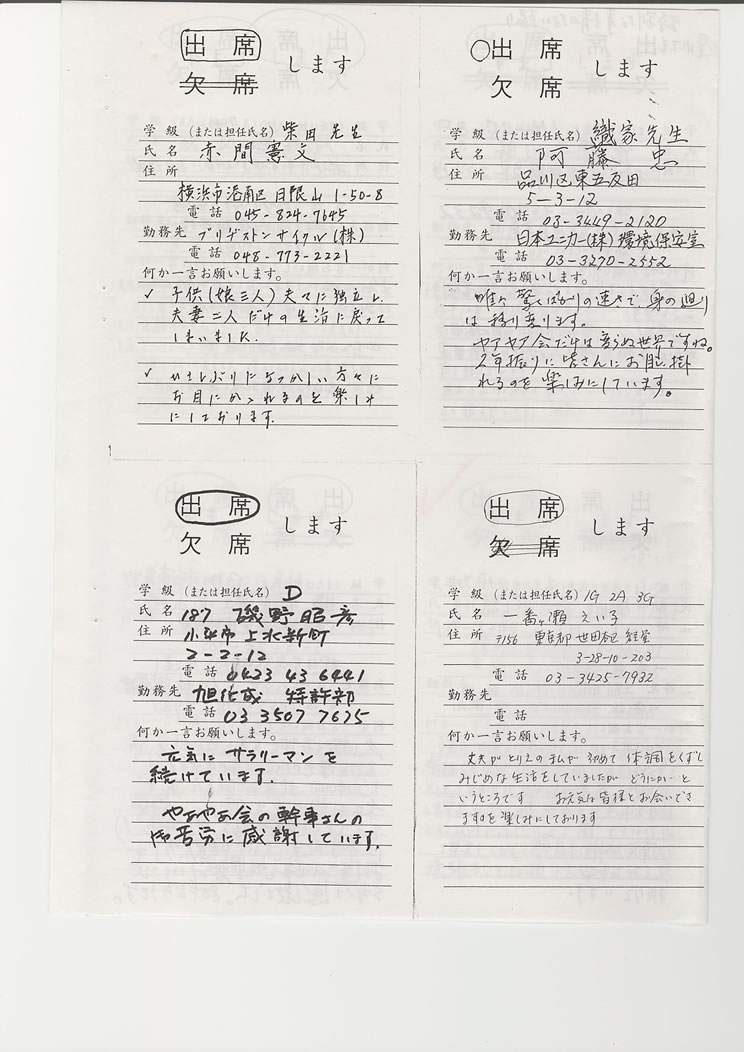 出席
欠席
します
学級(または担任氏名) 柴田先生
氏名 赤間憲文
住所
横浜市港南区日限山 1-50-8
電話 045-824-7645
勤務先 ブリヂストンサイクル(株)
電話 048-773-2221
何か一言お願いします。
✓ 子供(娘三人)夫々に独立し、
夫妻二人だけの生活に戻って
しまいました。
✓ ひさしぶりになつかしい方々に
お目にかゝれるのを楽しみ
にしております。
○出席
欠席
します
学級(または担任氏名) 織家先生
氏名 阿藤忠
住所 品川区東五反田
5-3-12
電話 03-3449-2120
勤務先 日本ユニカー(株)環境保安室
電話 03-3270-2552
何か一言お願いします。
唯々驚くばかりの速さで、身の廻り
は移り変ります。
ヤアヤア会だけは変らぬ世界ですね。
2年振りに皆さんにお目に掛
れるのを楽しみにしています。
出席
欠席
します
学級(または担任氏名) D
氏名 187 磯野昭彦
住所 小平市上水新町
2-2-12
電話 0423 43 6441
勤務先 旭化成 特許部
電話 03 3507 7675
何か一言お願いします。
元気にサラリーマンを
続けています。
やあやあ会の幹事さんの
御苦労に感謝しています。
出席
欠席
します
学級(または担任氏名) 1G 2A 3G
氏名 一番ヶ瀬えい子
住所 〒156 東京都世田谷区経堂
3-28-10-203
電話 03-3425-7932
勤務先
電話
何か一言お願いします。
丈夫がとりえの私が初めて体調をくずし
みじめな生活をしていましたが どうにか‥と
いうところです お元気な皆様とお会いでき
ますのを楽しみにしております